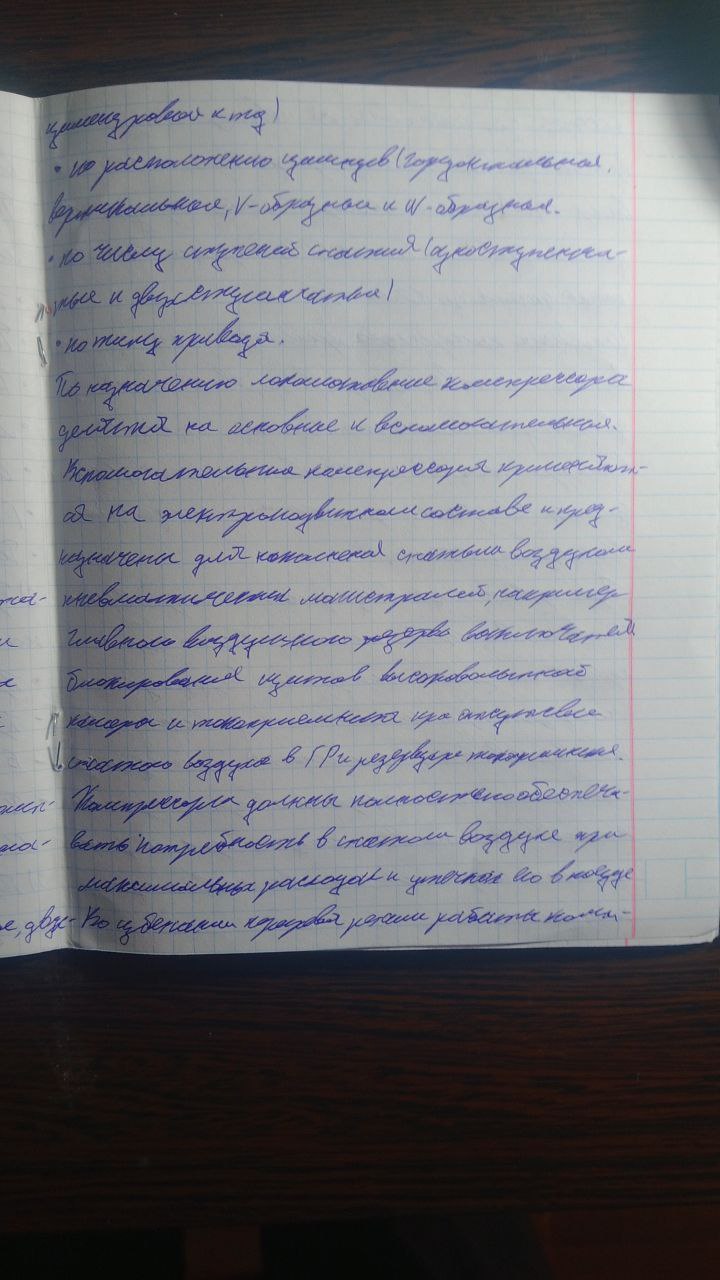 цилиндровой и тд)
• по расположению цилиндров (горизонтальная,
вертикальная, V-образная и W-образная.
• по числу ступеней сжатия (одноступенча-
тые и двухступенчатые)
• по типу привода.
По назначению локомотивные компрессора
делятся на основные и вспомогательные.
Вспомогательные компрессора применяют-
ся на электроподвижном составе и пред-
назначены для наполнения сжатым воздухом
пневматических магистралей, например
главного воздушного резерва выключателя
блокирования щитов высоковольтной
камеры и токоприемника при отсутствие
сжатого воздуха в ГР и резервуаре токоприемника.
Компрессора должны полностью обеспечи-
вать потребность в сжатом воздухе при
максимальных расходах и утечках его в поезде
Во избежании перегрева режим работы комп-